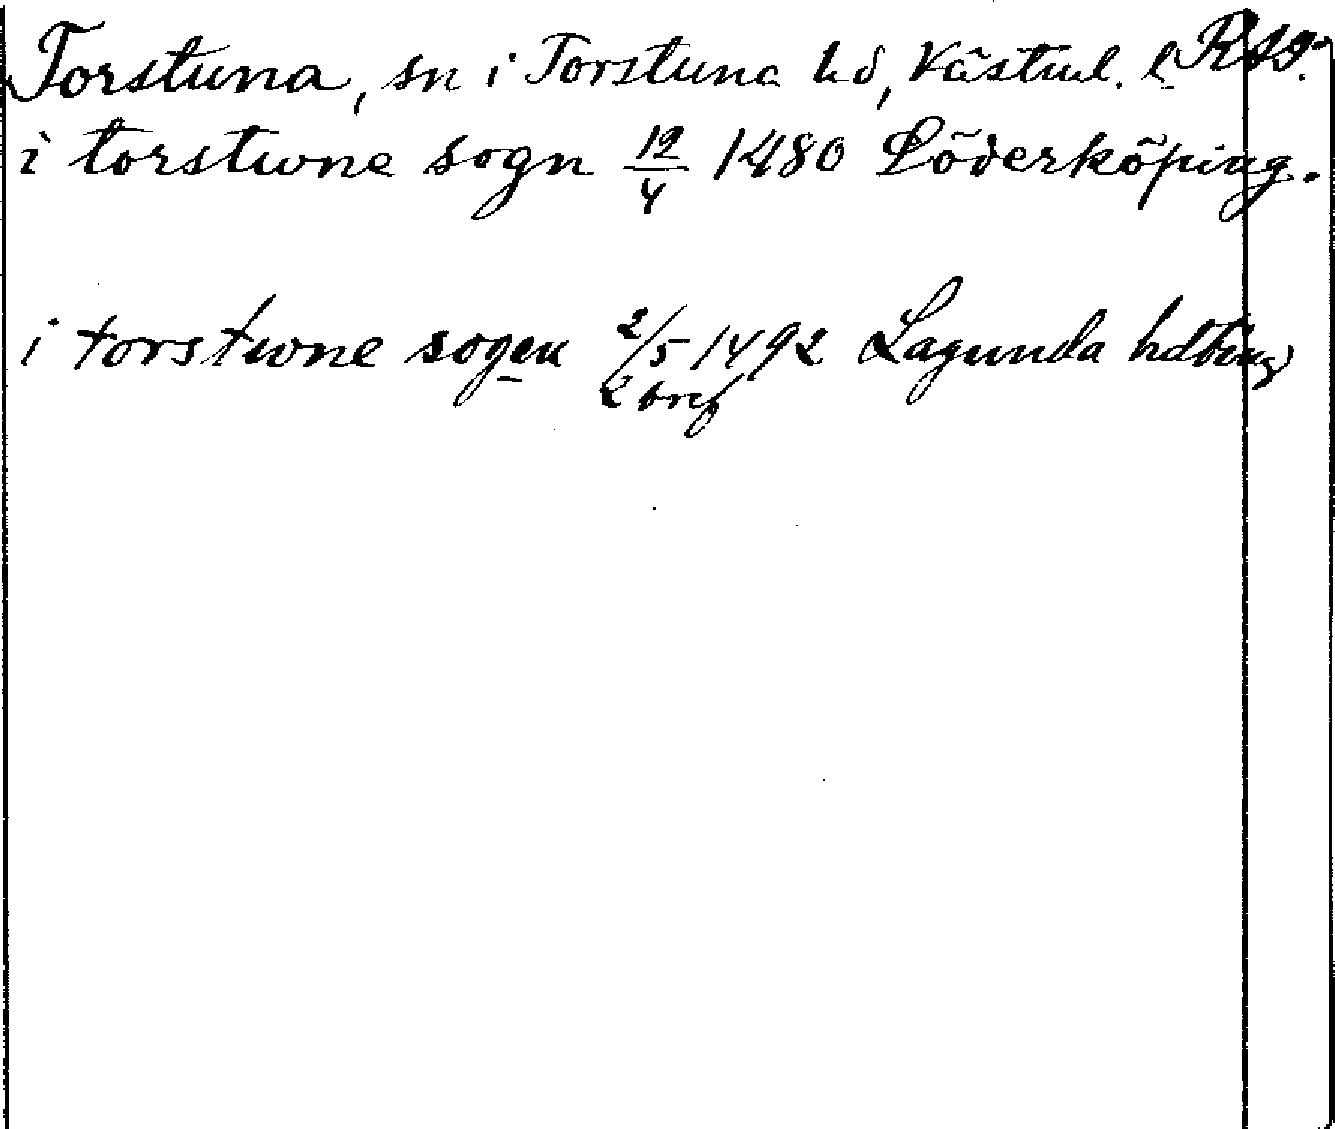 Torstuna, sn i Torstuna hd, Västml. l RAp.
i torstwne sogn 12/4 1480 Söderköping.
i torstwne sogen 2/5 1492 Lagunda hdting
2 bref